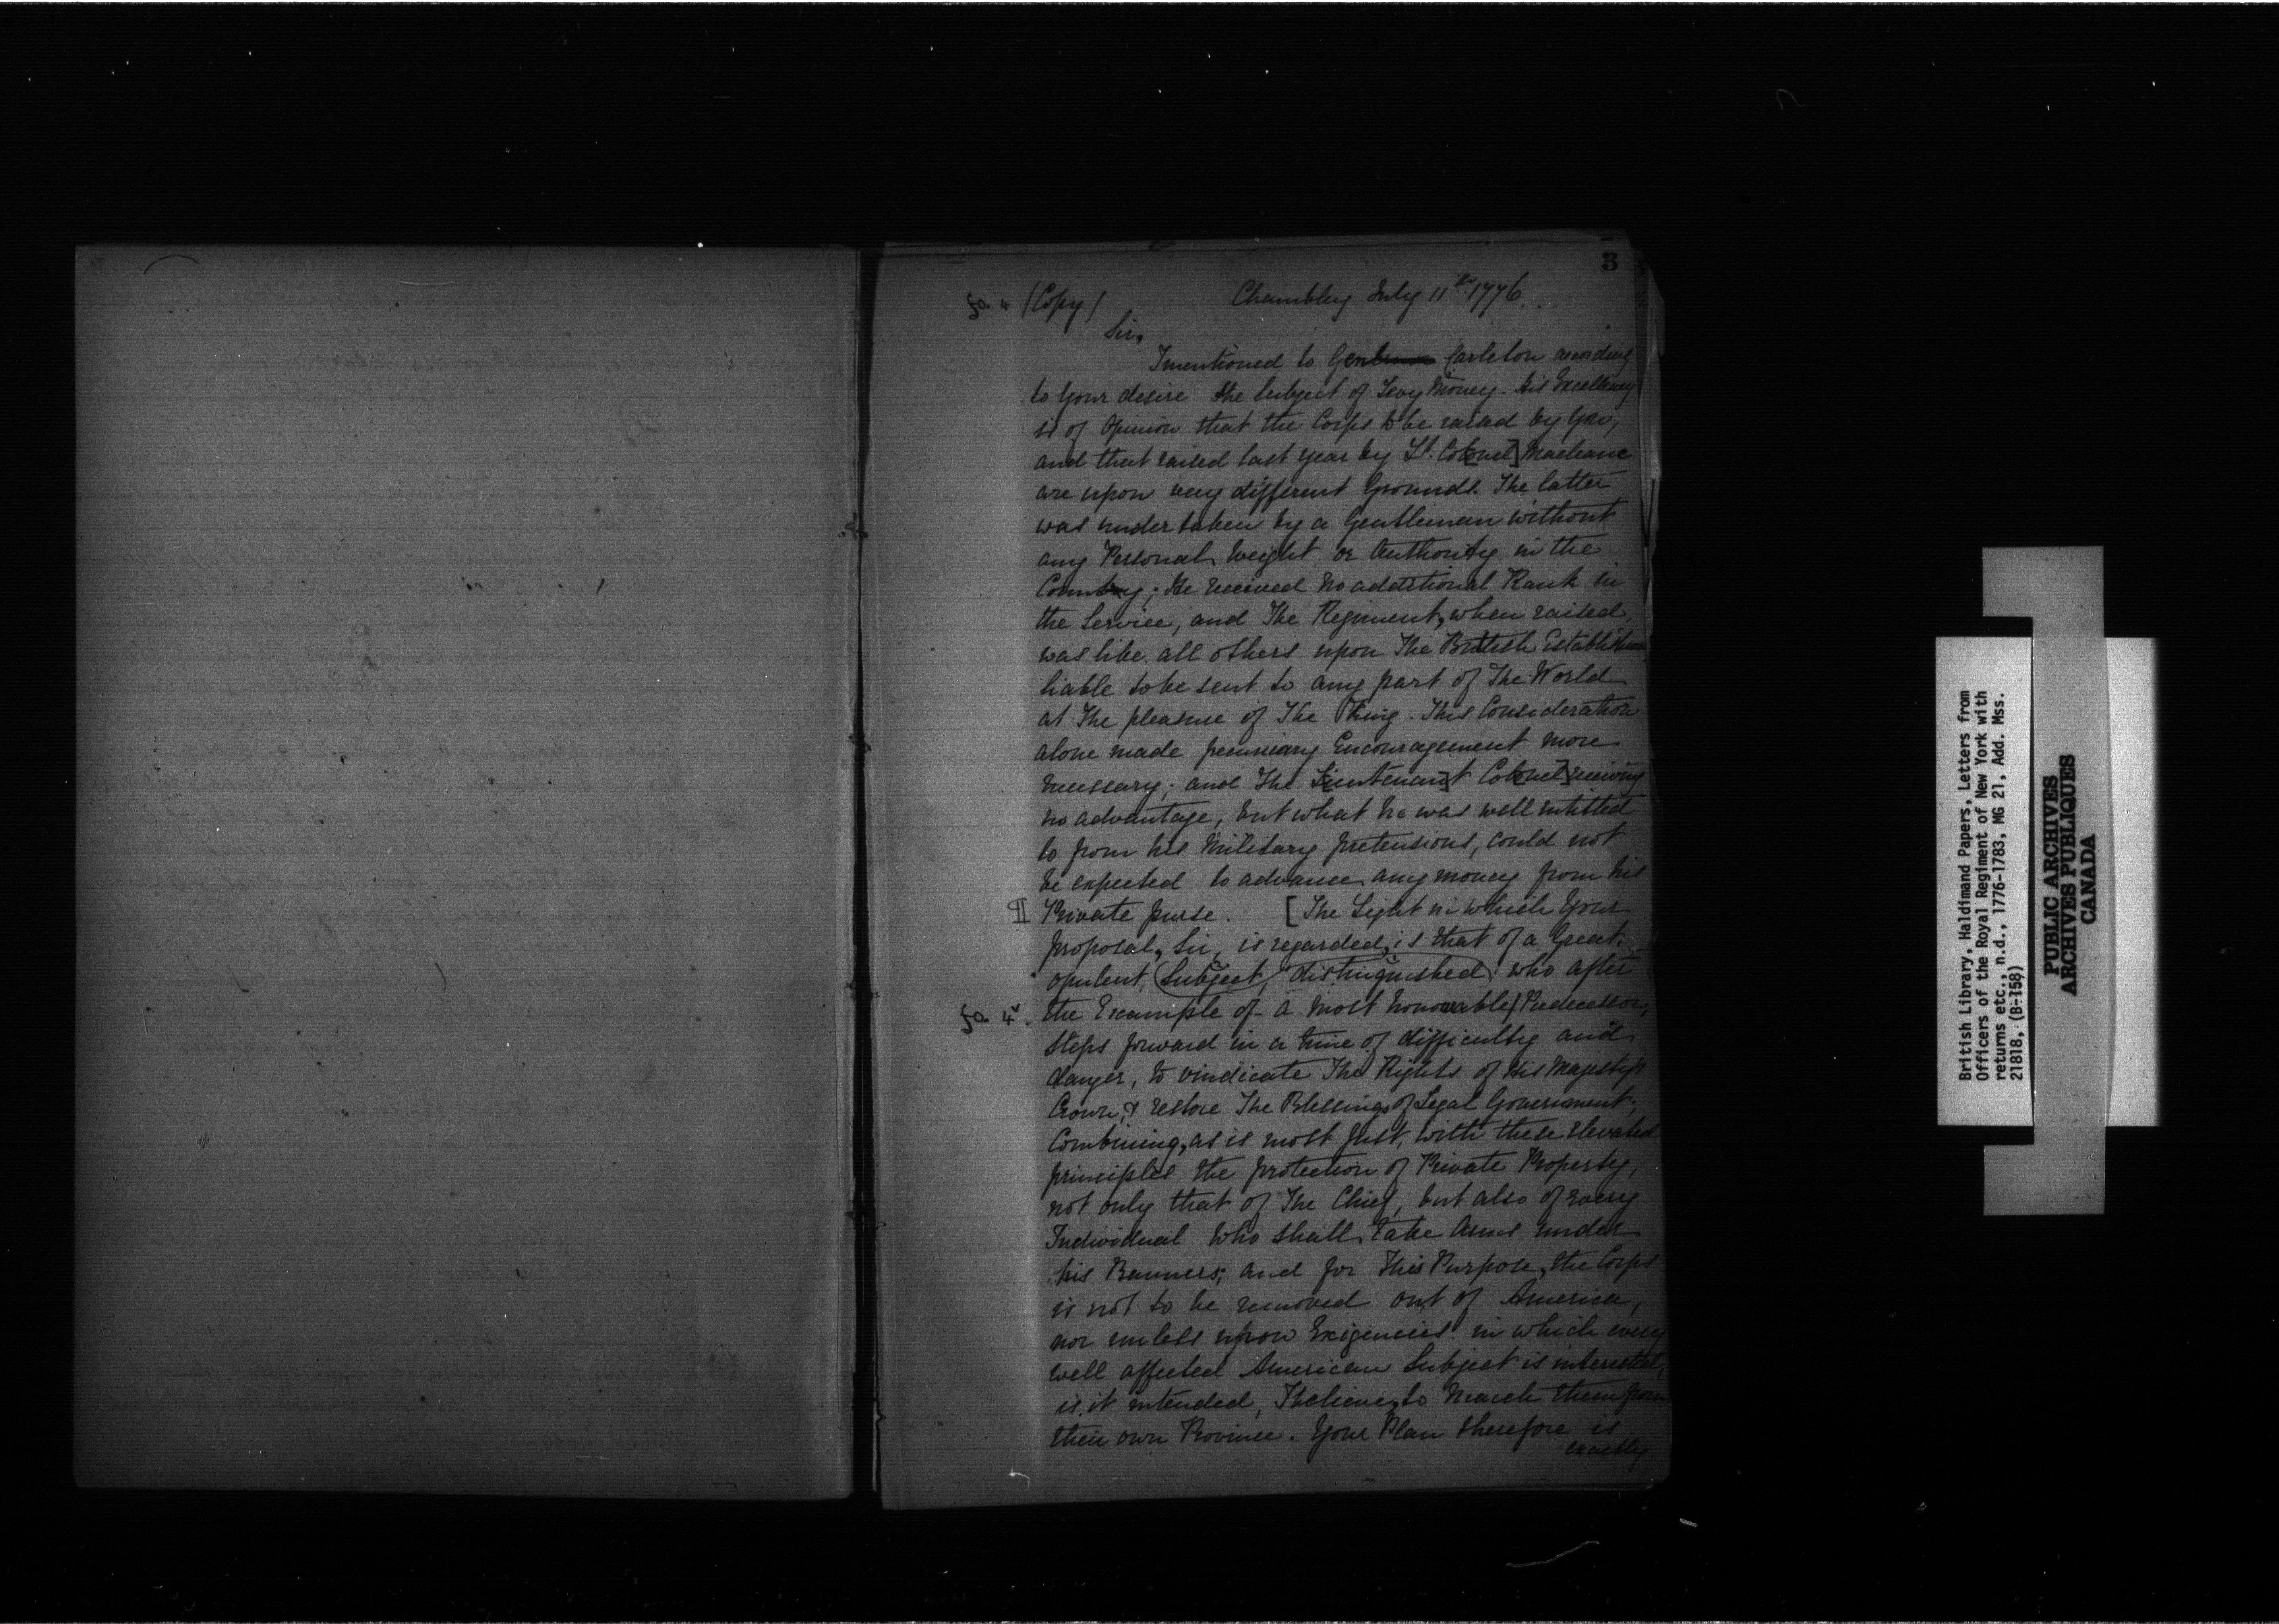 3
fo. 4 (Copy) Chambley July 11th 1776.
Sir,
I mentioned to Gen Carleton according
to your desire the Subject of Levy Money. His Excellency
is of Opinion that the Corps to be raised by You,
and that raised last year by Lt. Co[lonel] Macleane
are upon very different Grounds. The latter
was undertaken by a Gentleman without
any Personal Weight or Authority in the
Country; He received no additional Rank in
the Service, and The Regiment, when raised,
was like all others upon The British Establishment,
liable to be sent to any part of The World
at The pleasure of The King. This Consideration
alone made pecuniary Encouragement more
necessary; and The L[ieutenan]t Co[lonel] receiving
no advantage, but what he was well entitled
to from his Military pretensions, could not
be expected to advance any money from his
¶ Private purse. [The Light in which Your
proposal, Sir, is regarded, is that of a Great
opulent Subject, distinguished who after
fo. 4v. the Example of a most honourable / Predecessor,
steps forward in a time of difficulty and
danger, to vindicate The Rights of His Majesty's
Crown, & restore The Blessings of Legal Government;
Combining, as is most just, with these elevated
principles the protection of Private Property,
not only that of The Chief, but also of every
Individual who shall take Arms under
his Banners; and for This Purpose, the Corps
is not to be removed out of America,
nor unless upon Exigencies in which every
well affected American Subject is interested,
is it intended, I believe, to March them from
their own Province. Your Plan therefore is
exactly
British Library, Haldimand Papers, Letters from
Officers of the Royal Regiment of New York with
returns etc., n.d., 1776-1783, MG 21, Add. Mss.
21818, (B-158)
PUBLIC ARCHIVES
ARCHIVES PUBLIQUES
CANADA